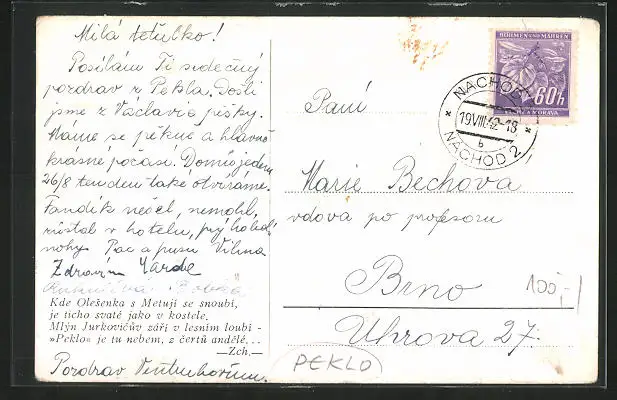 Milá tetulko!
Posílám Ti srdečný
pozdrav z Pekla. Došli
jsme z Václavic pěšky.
Máme se pěkně a hlavně
krásné počasí. Domů jedem
26/8 tenden také otvíráme.
Fandík nešel, nemohl,
zůstal v hotelu, prý ho bolí
nohy. Pac a pusu Vilma
Zdravím Jarda
Kde Olešenka s Metují se snoubí,
je ticho svaté jako v kostele.
Mlýn Jurkovičův září v lesním loubí -
»Peklo« je tu nebem, z čertů andělé...
—Zch.—
Pozdrav
BÖHMEN UND MÄHREN
60h
ČECHY A MORAVA
NACHOD 2
19.VIII.42-18
b
NÁCHOD 2
Paní
Marie Bechova
vdova po profesoru
Brno
Uhrova 27.
100,-
PEKLO